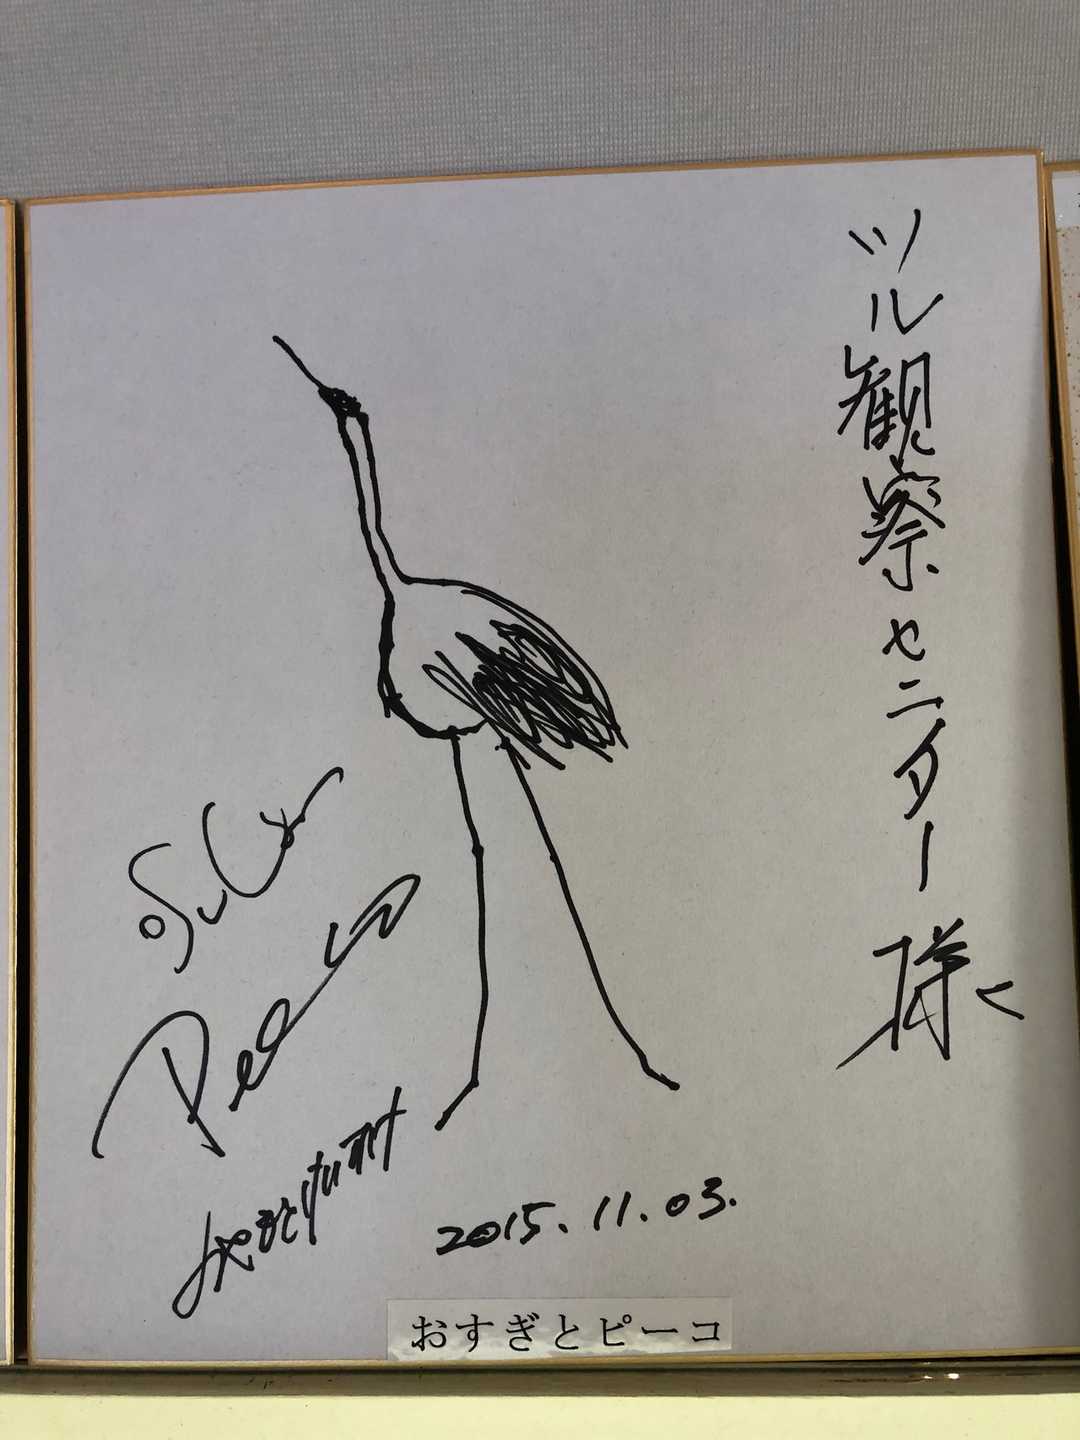 ツル観察センター様へ
OSuGi
Peeco
2015.11.03.
おすぎとピーコ